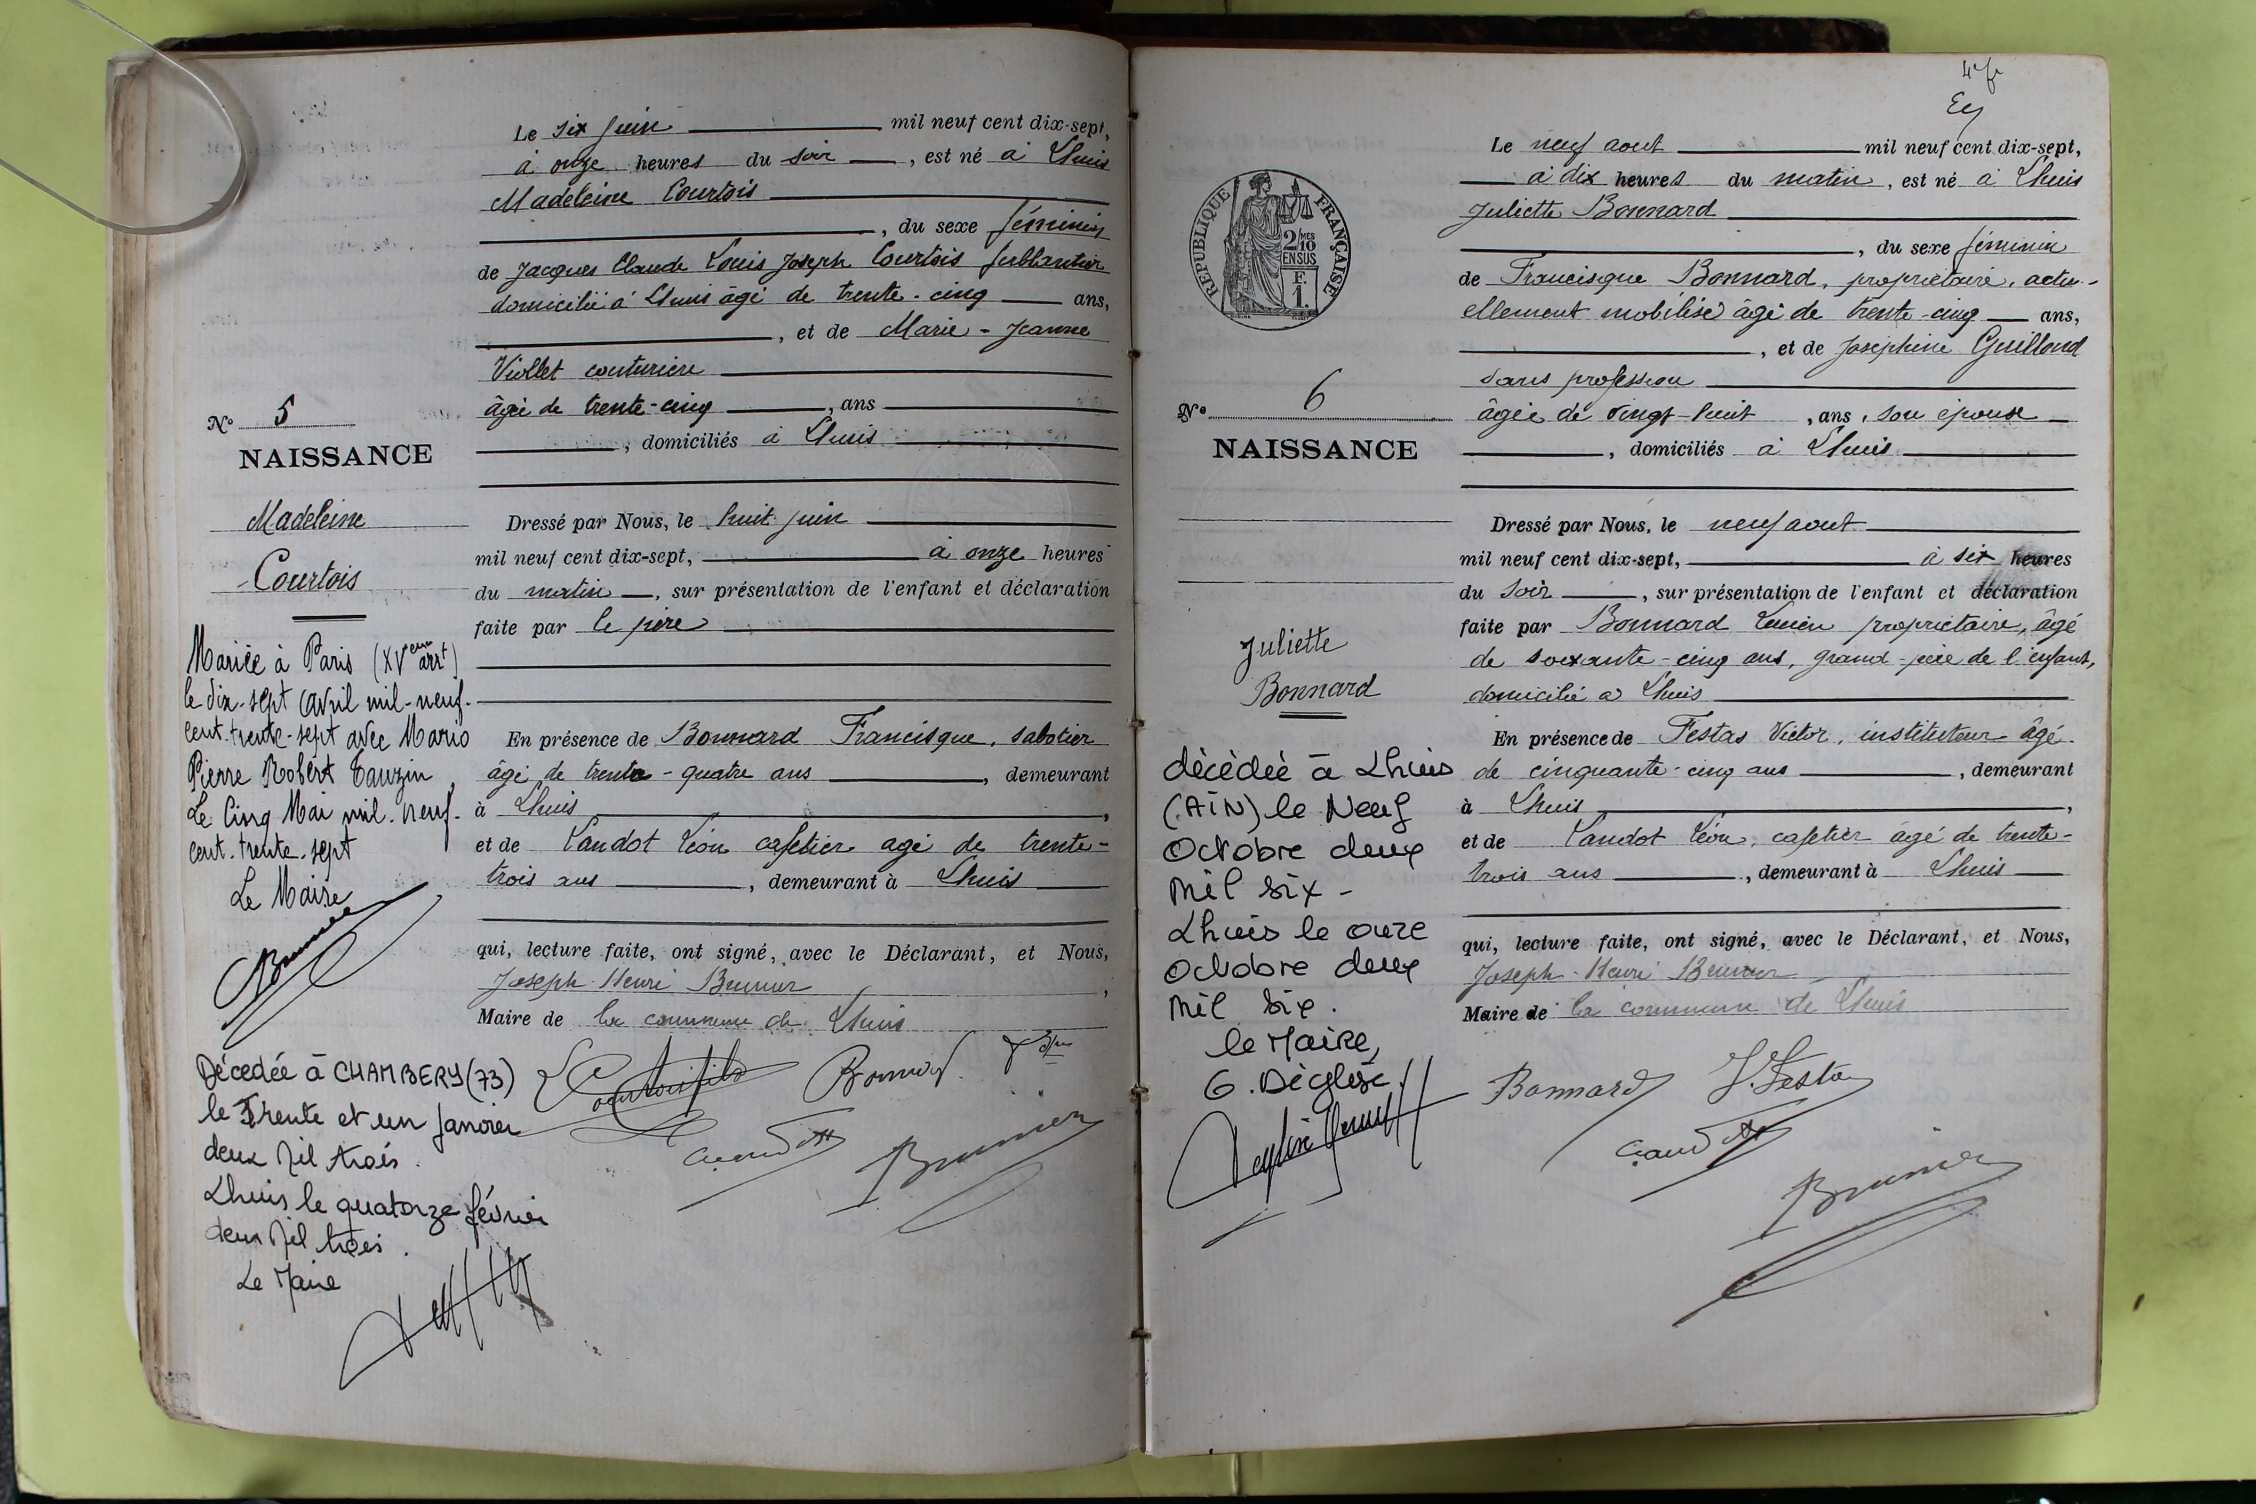 Le six juin mil neuf cent dix-sept,
à onze heures du soir, est né à Lhuis
Madeleine Courtois
, du sexe féminin
de Jacques Claude Louis Joseph Courtois ferblantier
domicilié à Lhuis âgé de trente-cinq ans,
, et de Marie-Jeanne
Viollet couturière
âgée de trente-cinq, ans
, domiciliés à Lhuis
No 5
NAISSANCE
Madeleine
Courtois
Dressé par Nous, le huit juin
mil neuf cent dix-sept, à onze heures
du matin, sur présentation de l'enfant et déclaration
faite par le père
En présence de Bonnard Francisque, sabotier
âgé de trente-quatre ans, demeurant
à Lhuis,
et de Landot Léon cafetier agé de trente-
trois ans, demeurant à Lhuis
qui, lecture faite, ont signé, avec le Déclarant, et Nous,
Joseph Henri Brunier,
Maire de la commune de Lhuis
Courtois fils
Bonnard
Brunier
Mariée à Paris (XVeme arrt)
le dix-sept Avril mil-neuf-
cent-trente-sept avec Mario
Pierre Robert Tauzin,
Le Cinq Mai mil-neuf-
cent-trente-sept
Le Maire
Brunier
Décedée à CHAMBERY (73)
le Trente et un Janvier
deux Mil trois.
Lhuis le quatorze février
deux Mil trois.
Le Maire
Le neuf aout mil neuf cent dix-sept,
à dix heures du matin, est né à Lhuis
Juliette Bonnard
, du sexe féminin
de Francisque Bonnard, propriétaire, actu-
ellement mobilisé âgé de trente-cinq ans,
, et de Joséphine Guilland
sans profession
âgée de vingt-huit, ans, son épouse
, domiciliés à Lhuis
REPUBLIQUE FRANÇAISE
2/MES
10
EN SUS
F.
1.
No 6
NAISSANCE
Juliette
Bonnard
Dressé par Nous, le neuf aout
mil neuf cent dix-sept, à six heures
du soir, sur présentation de l'enfant et déclaration
faite par Bonnard Lucien propriétaire, âgé
de soixante-cinq ans, grand-père de l'enfant,
domicilié à Lhuis
En présence de Festas Victor, instituteur âgé
de cinquante-cinq ans, demeurant
à Lhuis,
et de Landot Léon, cafetier âgé de trente-
trois ans, demeurant à Lhuis
qui, lecture faite, ont signé, avec le Déclarant, et Nous,
Joseph Henri Brunier
Maire de la commune de Lhuis
Bonnard
V. Festas
Brunier
décèdée à Lhuis
(AIN) le Neuf
Octobre deux
mil six -
Lhuis le onze
Octobre deux
mil six.
le Maire,
G. Déglise